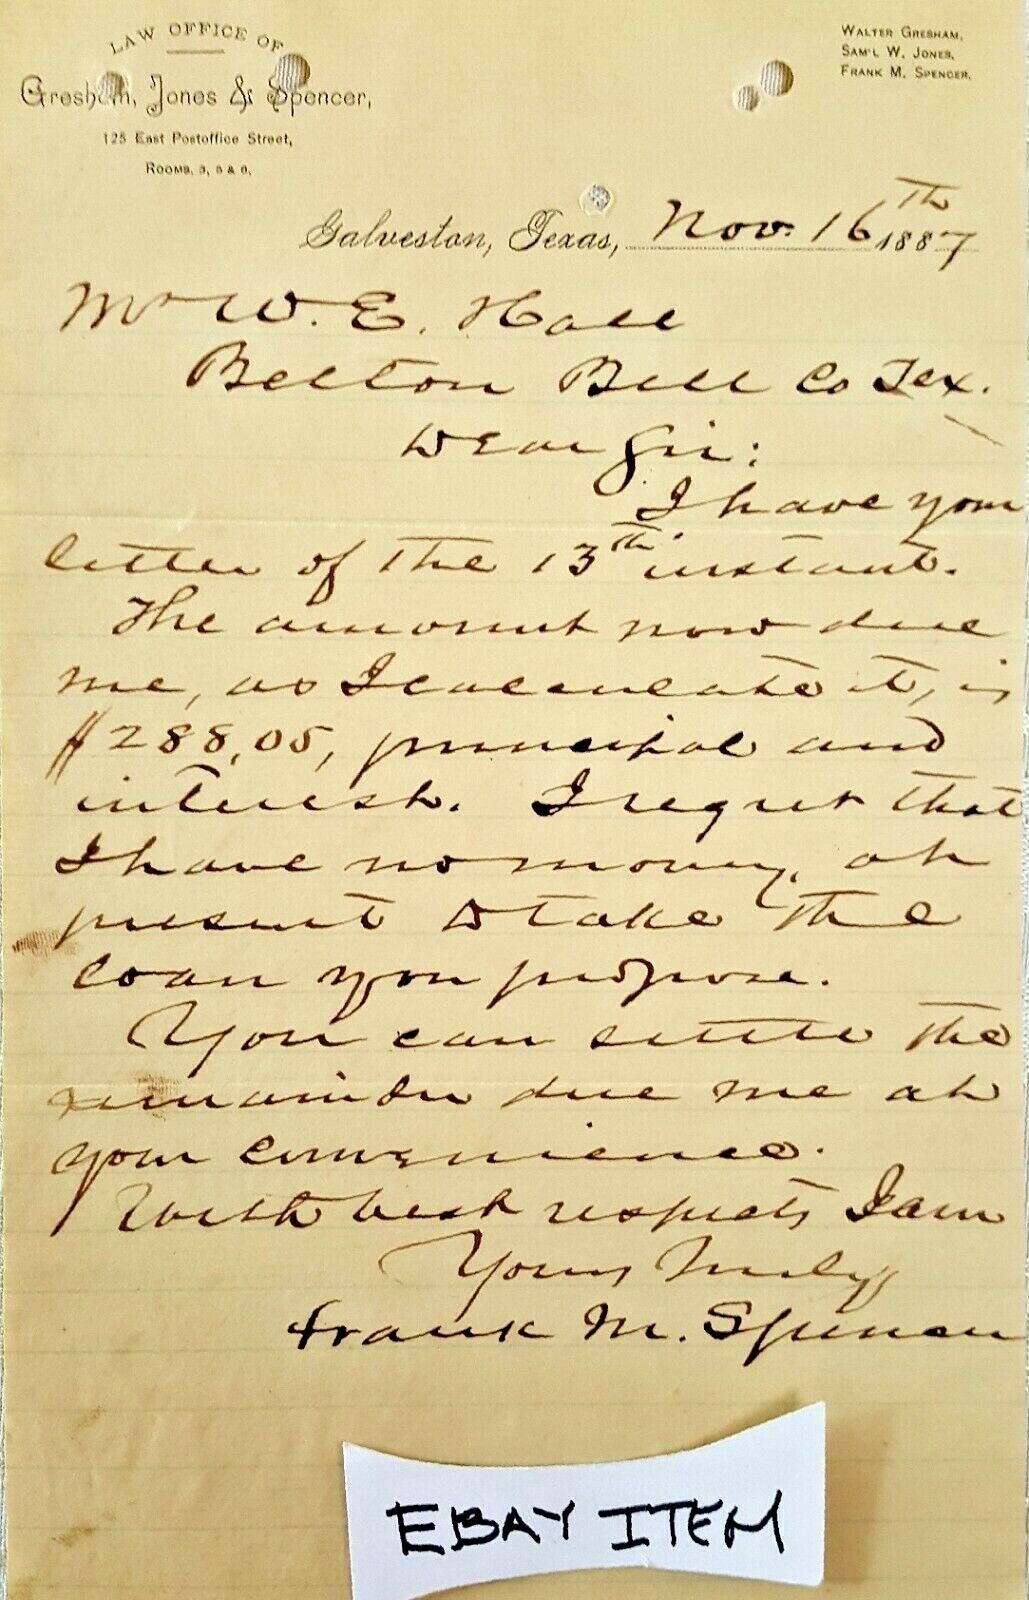 LAW OFFICE OF
Gresham, Jones & Spencer,
125 East Postoffice Street,
ROOMS, 3, 5 & 6,
WALTER GRESHAM,
SAM'L W. JONES,
FRANK M. SPENCER,
Galveston, Texas, Nov. 16th 1887
Mr W. E. Hall
Belton Bell Co Tex.
Dear Sir:
I have your
letter of the 13th instant.
The amount now due
me, as I calculate it, is
$288.05, principal and
interest. I regret that
I have no money, at
present to take the
loan you propose.
You can settle the
remainder due me at
your convenience.
With best respects I am
Yours truly
Frank M. Spencer
EBAY ITEM